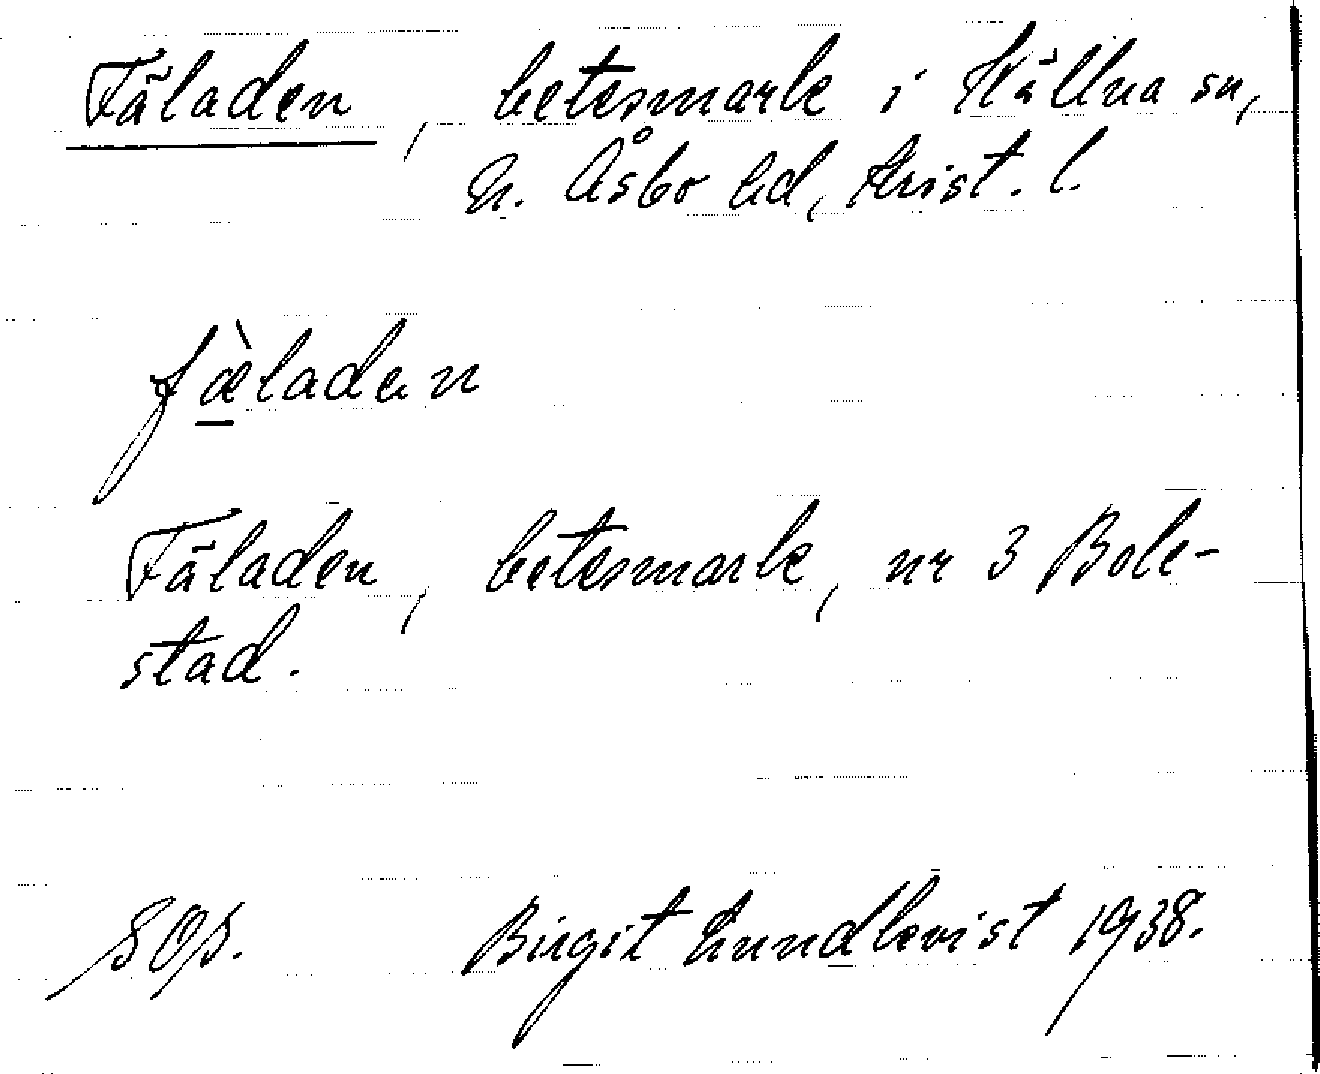 Fäladen, betesmark i Källna sn,
N. Åsbo hd, Krist. l.
fæ̀ladan
Fäladen, betesmark, nr 3 Bole-
stad.
SOp. Birgit Lundkvist 1938.